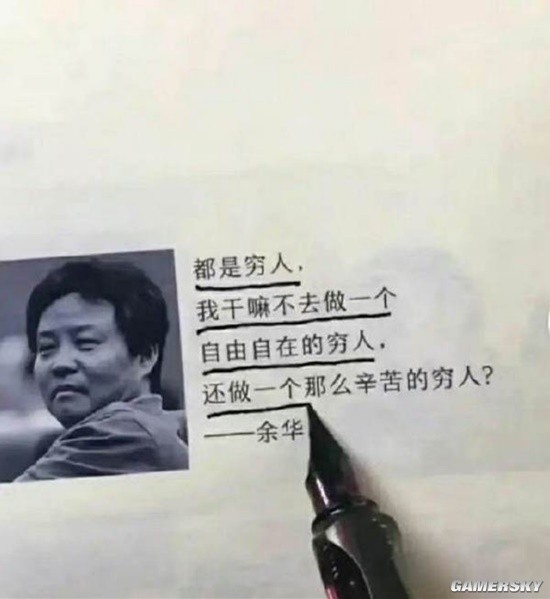 都是穷人,
我干嘛不去做一个
自由自在的穷人,
还做一个那么辛苦的穷人?
——余华
GAMERSKY